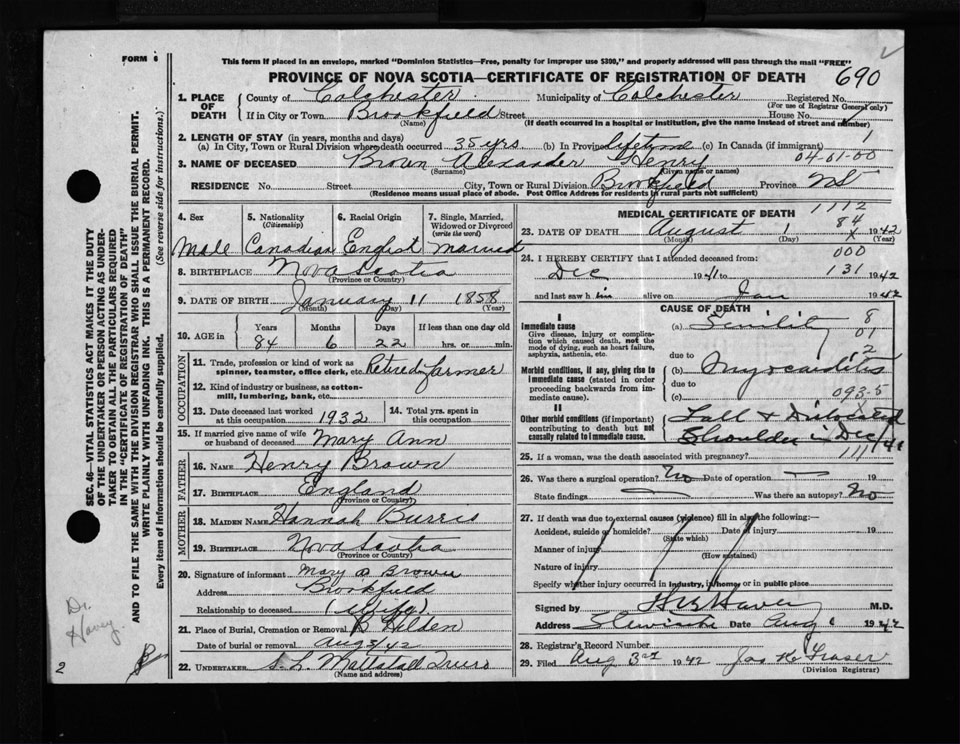 FORM 6
This form if placed in an envelope, marked "Dominion Statistics—Free, penalty for improper use $300," and properly addressed will pass through the mail "FREE"
PROVINCE OF NOVA SCOTIA—CERTIFICATE OF REGISTRATION OF DEATH
690
1. PLACE OF DEATH
County of Colchester Municipality of Colchester Registered No.
(For use of Registrar General only)
If in City or Town Brookfield Street House No.
(Name) (If death occurred in a hospital or institution, give the name instead of street and number)
2. LENGTH OF STAY (in years, months and days)
(a) In City, Town or Rural Division where death occurred 35 yrs. (b) In Province lifetime (c) In Canada (if immigrant) 1
3. NAME OF DECEASED Brown Alexander Henry 04-01-00
(Surname) (Given name or names)
RESIDENCE No. Street City, Town or Rural Division Brookfield Province NS
(Residence means usual place of abode. Post Office Address for residents in rural parts not sufficient)
4. Sex
Male
5. Nationality
(Citizenship)
Canadian
6. Racial Origin
English
7. Single, Married, Widowed or Divorced
(write the word)
Married
8. BIRTHPLACE Nova Scotia
(Province or Country)
9. DATE OF BIRTH January 11 1858
(Month) (Day) (Year)
10. AGE in Years Months Days If less than one day old
84 6 22 hrs. or min.
OCCUPATION
11. Trade, profession or kind of work as spinner, teamster, office clerk, etc. Retired farmer
12. Kind of industry or business, as cotton-mill, lumbering, bank, etc.
13. Date deceased last worked at this occupation 1932
14. Total yrs. spent in this occupation
15. If married give name of wife or husband of deceased Mary Ann
FATHER
16. NAME Henry Brown
17. BIRTHPLACE England
(Province or Country)
MOTHER
18. MAIDEN NAME Hannah Burris
19. BIRTHPLACE Nova Scotia
(Province or Country)
20. Signature of informant Mary A Brown
Address Brookfield
Relationship to deceased (Wife)
21. Place of Burial, Cremation or Removal Hilden
Date of burial or removal Aug 3/42
22. UNDERTAKER S. L. Mattatall Truro
(Name and address)
MEDICAL CERTIFICATE OF DEATH 1112
84
23. DATE OF DEATH August 1 1942
(Month) (Day) (Year)
24. I HEREBY CERTIFY that I attended deceased from: 000
Dec 1941 to 131 1942
and last saw him alive on Jan 1942
CAUSE OF DEATH
I
Immediate cause
Give disease, injury or complication which caused death, not the mode of dying, such as heart failure, asphyxia, asthenia, etc.
(a) Senility 8
01
due to 2
Morbid conditions, if any, giving rise to immediate cause (stated in order proceeding backwards from immediate cause).
(b) Myocarditis
due to
(c) 093-5
II
Other morbid conditions (if important) contributing to death but not causally related to immediate cause.
Fall & Dislocated
Shoulder in Dec/41
25. If a woman, was the death associated with pregnancy? 111
26. Was there a surgical operation? No Date of operation —
State findings — Was there an autopsy? No
27. If death was due to external causes (violence) fill in also the following:—
Accident, suicide or homicide? Date of injury 19
(State which)
Manner of injury
(How sustained)
Nature of injury
Specify whether injury occurred in industry, in home, or in public place
Signed by M.D.
Address Date Aug 1942
28. Registrar's Record Number
29. Filed Aug 3rd 1942 Jas H Fraser
(Division Registrar)
SEC. 46—VITAL STATISTICS ACT MAKES IT THE DUTY
OF THE UNDERTAKER OR PERSON ACTING AS UNDER-
TAKER TO OBTAIN ALL THE PARTICULARS REQUIRED
IN THE "CERTIFICATE OF REGISTRATION OF DEATH"
AND TO FILE THE SAME WITH THE DIVISION REGISTRAR WHO SHALL ISSUE THE BURIAL PERMIT.
WRITE PLAINLY WITH UNFADING INK. THIS IS A PERMANENT RECORD.
Every item of information should be carefully supplied. (See reverse side for instructions.)
Dr.
2